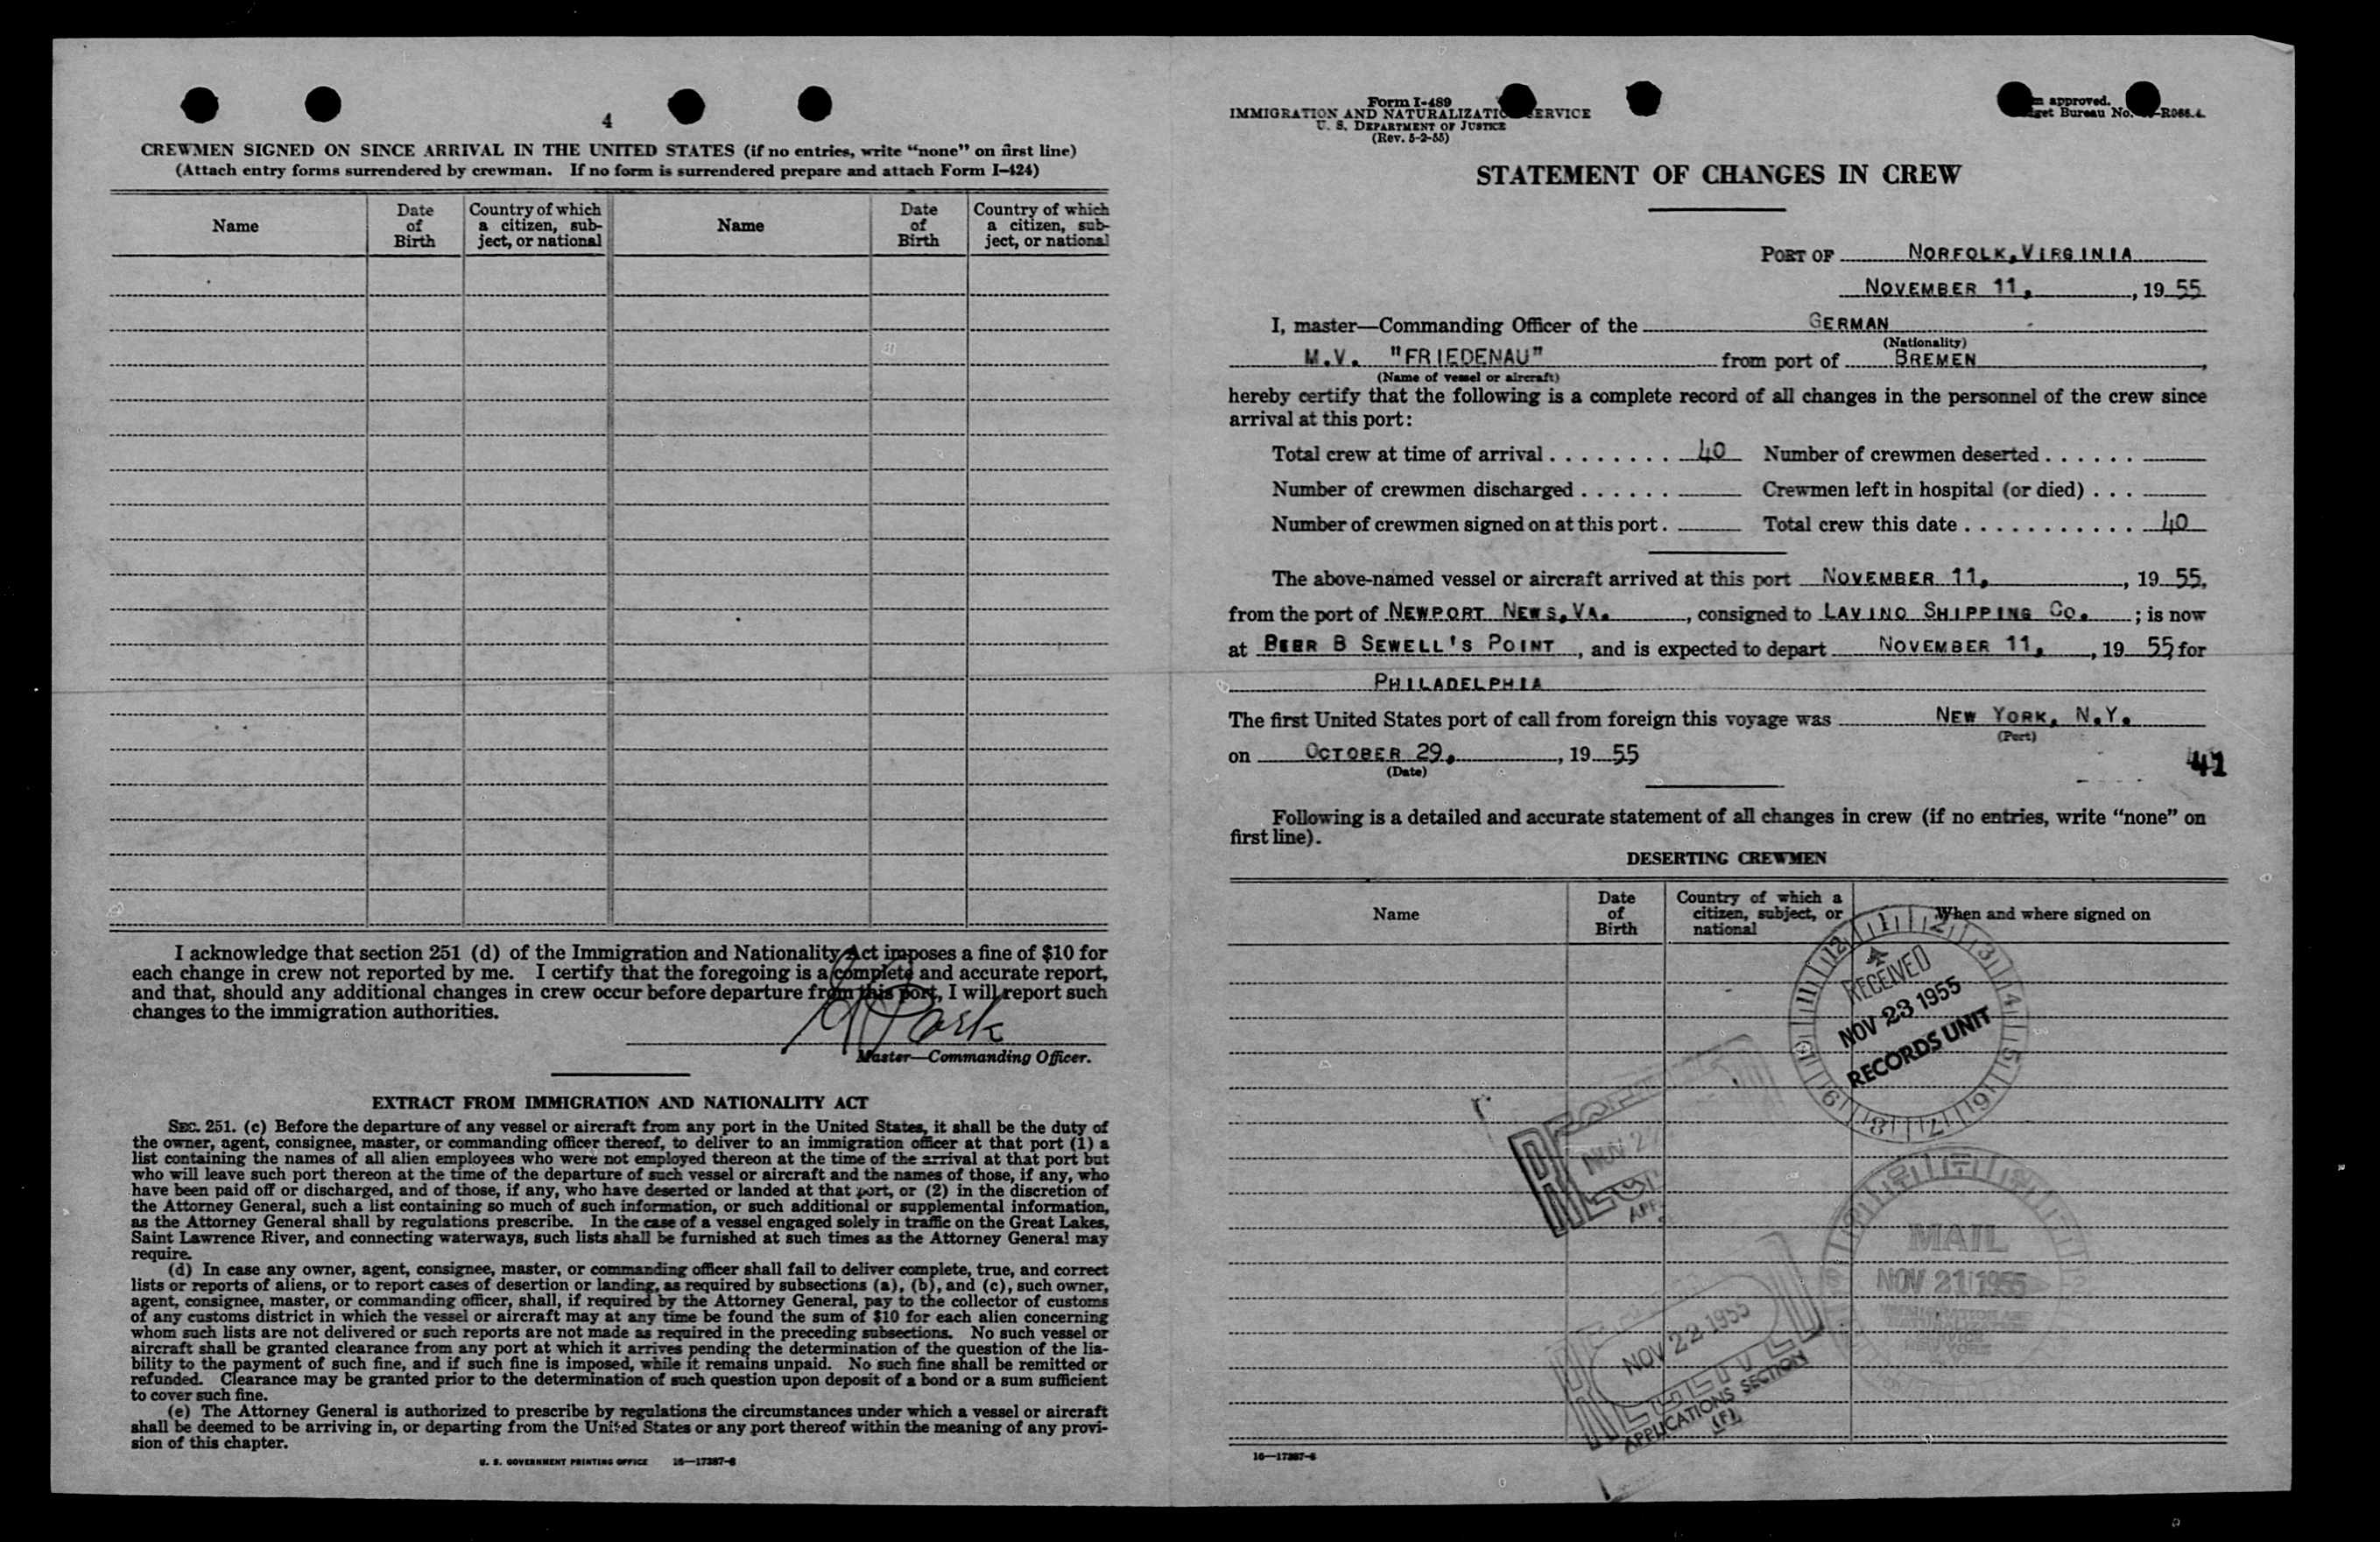 4
CREWMEN SIGNED ON SINCE ARRIVAL IN THE UNITED STATES (if no entries, write "none" on first line)
(Attach entry forms surrendered by crewman. If no form is surrendered prepare and attach Form I-424)
Name
Date of Birth
Country of which a citizen, sub-
ject, or national
Name
Date of Birth
Country of which a citizen, sub-
ject, or national
I acknowledge that section 251 (d) of the Immigration and Nationality Act imposes a fine of $10 for
each change in crew not reported by me. I certify that the foregoing is a complete and accurate report,
and that, should any additional changes in crew occur before departure from this port, I will report such
changes to the immigration authorities.
Master—Commanding Officer.
EXTRACT FROM IMMIGRATION AND NATIONALITY ACT
SEC. 251. (c) Before the departure of any vessel or aircraft from any port in the United States, it shall be the duty of
the owner, agent, consignee, master, or commanding officer thereof, to deliver to an immigration officer at that port (1) a
list containing the names of all alien employees who were not employed thereon at the time of the arrival at that port but
who will leave such port thereon at the time of the departure of such vessel or aircraft and the names of those, if any, who
have been paid off or discharged, and of those, if any, who have deserted or landed at that port, or (2) in the discretion of
the Attorney General, such a list containing so much of such information, or such additional or supplemental information,
as the Attorney General shall by regulations prescribe. In the case of a vessel engaged solely in traffic on the Great Lakes,
Saint Lawrence River, and connecting waterways, such lists shall be furnished at such times as the Attorney General may
require.
(d) In case any owner, agent, consignee, master, or commanding officer shall fail to deliver complete, true, and correct
lists or reports of aliens, or to report cases of desertion or landing, as required by subsections (a), (b), and (c), such owner,
agent, consignee, master, or commanding officer, shall, if required by the Attorney General, pay to the collector of customs
of any customs district in which the vessel or aircraft may at any time be found the sum of $10 for each alien concerning
whom such lists are not delivered or such reports are not made as required in the preceding subsections. No such vessel or
aircraft shall be granted clearance from any port at which it arrives pending the determination of the question of the lia-
bility to the payment of such fine, and if such fine is imposed, while it remains unpaid. No such fine shall be remitted or
refunded. Clearance may be granted prior to the determination of such question upon deposit of a bond or a sum sufficient
to cover such fine.
(e) The Attorney General is authorized to prescribe by regulations the circumstances under which a vessel or aircraft
shall be deemed to be arriving in, or departing from the United States or any port thereof within the meaning of any provi-
sion of this chapter.
U. S. GOVERNMENT PRINTING OFFICE 16—17387-6
Form I-489
IMMIGRATION AND NATURALIZATION SERVICE
U. S. DEPARTMENT OF JUSTICE
(Rev. 5-2-55)
approved.
Bureau No. -R066.4.
STATEMENT OF CHANGES IN CREW
PORT OF NORFOLK, VIRGINIA
NOVEMBER 11, , 19 55
I, master—Commanding Officer of the GERMAN
(Nationality)
M.V. "FRIEDENAU" from port of BREMEN ,
(Name of vessel or aircraft)
hereby certify that the following is a complete record of all changes in the personnel of the crew since
arrival at this port:
Total crew at time of arrival . . . . . . . . 40 Number of crewmen deserted . . . . . .
Number of crewmen discharged . . . . . . Crewmen left in hospital (or died) . . .
Number of crewmen signed on at this port . Total crew this date . . . . . . . . . . . 40
The above-named vessel or aircraft arrived at this port NOVEMBER 11, , 19 55,
from the port of NEWPORT NEWS, VA. , consigned to LAVINO SHIPPING CO. ; is now
at BEBR B SEWELL'S POINT , and is expected to depart NOVEMBER 11, , 19 55 for
PHILADELPHIA
The first United States port of call from foreign this voyage was NEW YORK, N.Y.
(Port)
on OCTOBER 29, , 19 55
(Date)
41
Following is a detailed and accurate statement of all changes in crew (if no entries, write "none" on
first line).
DESERTING CREWMEN
Name
Date of Birth
Country of which a
citizen, subject, or
national
When and where signed on
12 1 2 3 4 5 6 7 8 9 11
RECEIVED
NOV 23 1955
RECORDS UNIT
NOV 2
MAIL
NOV 21 1955
NEW YORK
NOV 22 1955
RECEIVED
APPLICATIONS SECTION
(F)
16—17387-6